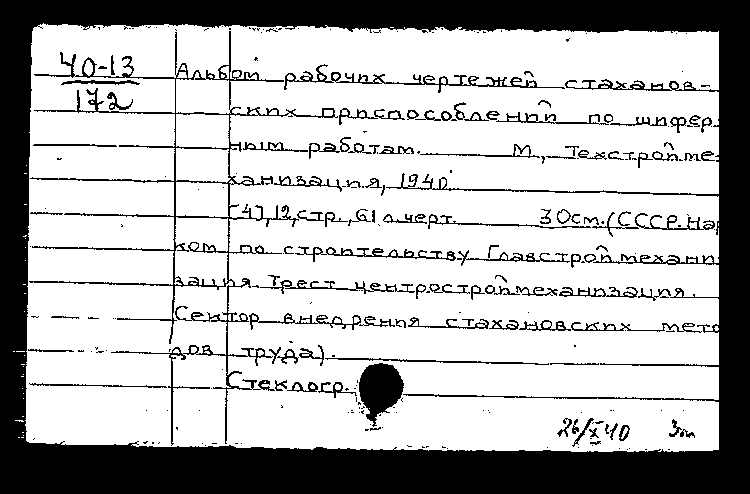 40-13
172
Альбом рабочих чертежей стаханов-
ских приспособлений по шифер
ным работам. М., Техстройме-
ханизация, 1940.
[4],12,стр.,61 л.черт. 30см.(СССР.Нар
ком по строительству Главстроймехани
зация. Трест центростроймеханизация.
Сектор внедрения стахановских мето
дов труда).
Стеклогр.
26/X 40